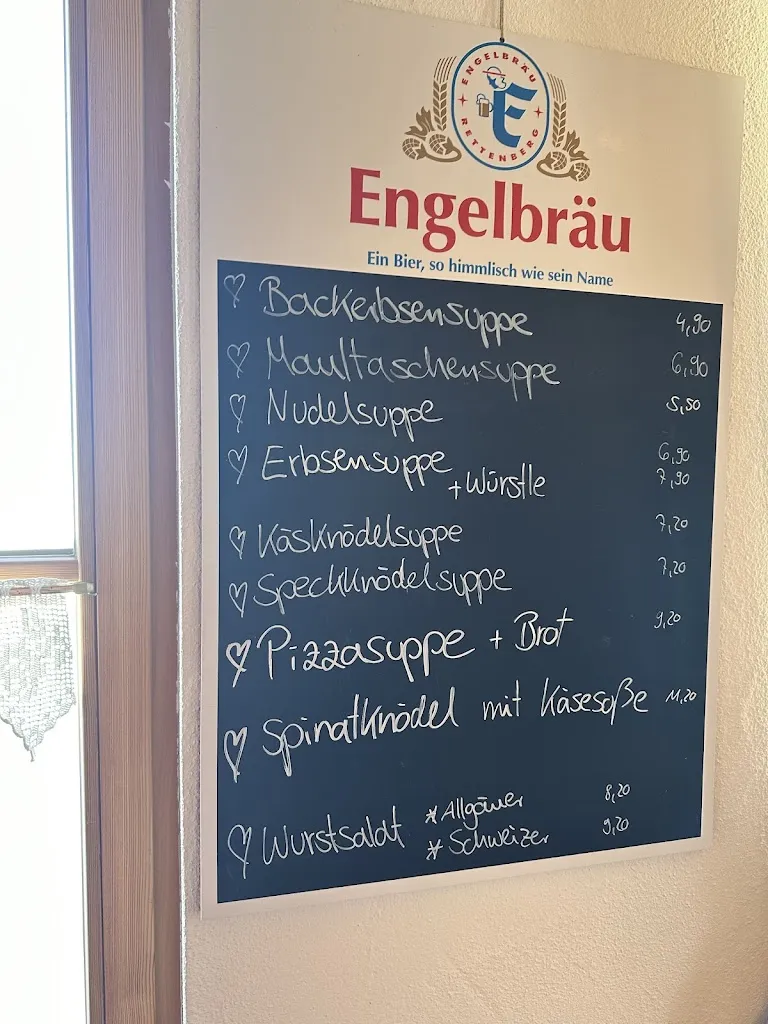 ENGELBRÄU
E
RETTENBERG
Engelbräu
Ein Bier, so himmlisch wie sein Name
Backerbsensuppe 4,90
Maultaschensuppe 6,90
Nudelsuppe 5,50
Erbsensuppe 6,90
+ Würstle 7,90
Käsknödelsuppe 7,20
Speckknödelsuppe 7,20
Pizzasuppe + Brot 9,20
Spinatknödel mit Käsesoße 11,20
Wurstsalat * Allgäuer 8,20
* Schweizer 9,20